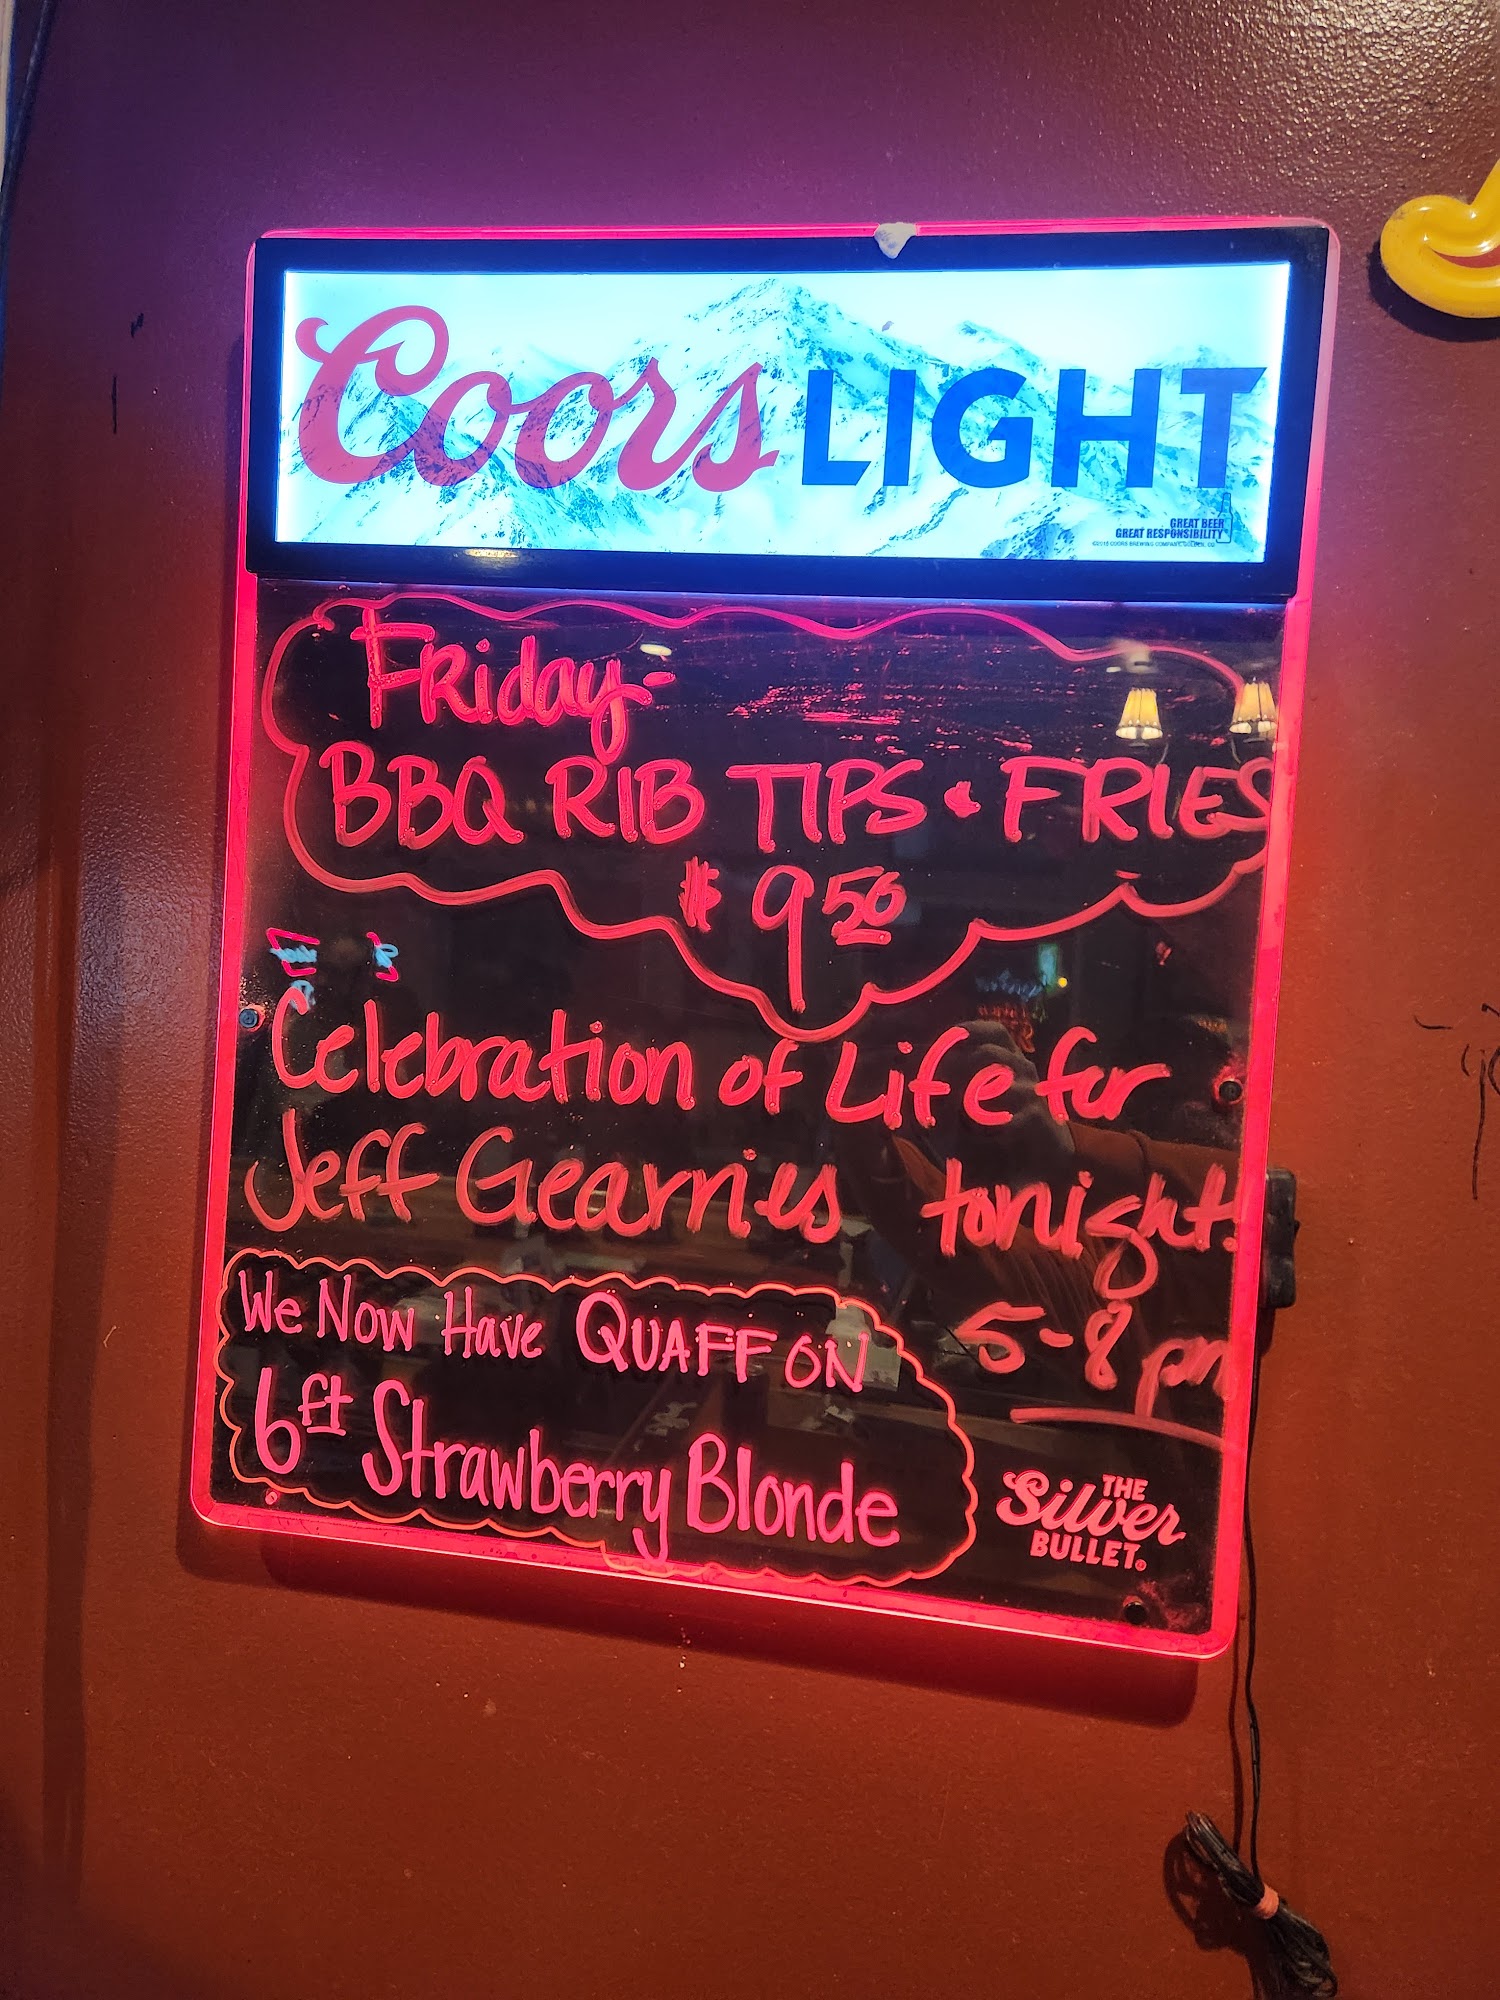 Coors LIGHT
GREAT BEER
GREAT RESPONSIBILITY
©2018 COORS BREWING COMPANY, GOLDEN, CO
Friday-
BBQ RIB TIPS & FRIES
$9 50
Celebration of Life for
Jeff Gearries tonight!
5-8 pm
We Now Have QUAFF ON
6ft Strawberry Blonde
THE
Silver
BULLET.